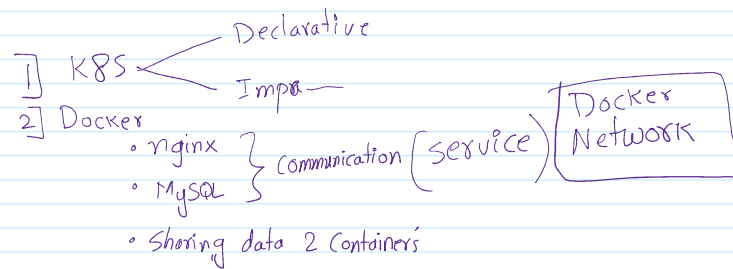 Declarative
1] K8S
Impa
2] Docker
• nginx
• MySQL
Communication (Service)
Docker
Network
• Sharing data 2 Containers